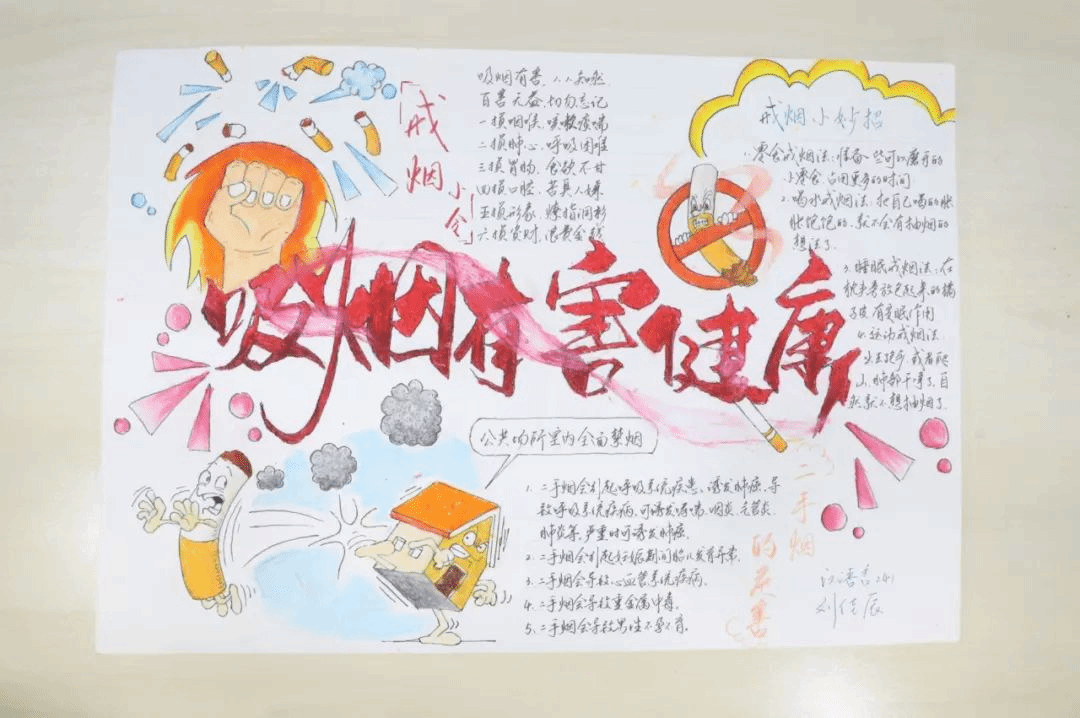 「戒烟小令」
吸烟有害，人人知晓
百害无益，切勿忘记
一损咽喉，咳嗽痰喘
二损肺心，呼吸困难
三损胃肠，食欲不甘
四损口腔，苦臭人嫌
五损形象，燎指洞衫
六损资财，浪费金钱
戒烟小妙招
1.零食戒烟法：准备一些可以磨牙的
小零食，占用更多的时间
2.喝水戒烟法，把自己喝的胀
胀饱饱的，就不会有抽烟的
想法了
3.睡眠戒烟法：在
枕头旁放色起来的橘
子皮有安眠作用
4.运动戒烟法
或者爬
山，肺部干净了，自
然就不想抽烟了
吸烟有害健康
公共场所室内全面禁烟
二手烟
的危害
1.二手烟会引起呼吸系统疾患、诱发肺癌、导
致呼吸系统疾病，可诱发哮喘、咽炎、气管炎、
肺炎等，严重时可诱发肺癌。
2.二手烟会引起妊娠期间胎儿发育异常。
3.二手烟会导致心血管系统疾病。
4.二手烟会导致重金属中毒。
5.二手烟会导致男性不孕不育。
汉语言241
刘佳辰